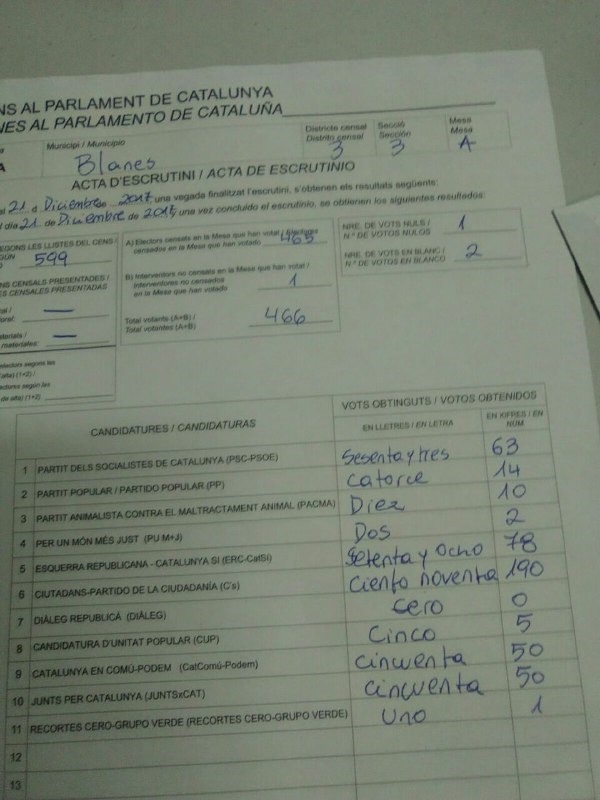 NS AL PARLAMENT DE CATALUNYA
NES AL PARLAMENTO DE CATALUÑA
Municipi / Municipio
Blanes
Districte censal
Distrito censal
3
Secció
Sección
3
Mesa
Mesa
A
ACTA D'ESCRUTINI / ACTA DE ESCRUTINIO
21 d Diciembre de 2017, una vegada finalitzat l'escrutini, s'obtenen els resultats següents:
l día 21 de Diciembre de 2017, una vez concluido el escrutinio, se obtienen los siguientes resultados:
EGONS LES LLISTES DEL CENS /
599
NS CENSALS PRESENTADES /
ES CENSALES PRESENTADAS
—
materials /
materiales: —
electors segons les
alta) (1+2) /
ectores según las
de alta) (1+2)
A) Electors censats en la Mesa que han votat / Electores
censados en la Mesa que han votado 465
B) Interventors no censats en la Mesa que han votat /
Interventores no censados
en la Mesa que han votado 1
Total votants (A+B) /
Total votantes (A+B) 466
NRE. DE VOTS NULS /
N.º DE VOTOS NULOS 1
NRE. DE VOTS EN BLANC /
N.º DE VOTOS EN BLANCO 2
CANDIDATURES / CANDIDATURAS
VOTS OBTINGUTS / VOTOS OBTENIDOS
EN LLETRES / EN LETRA
EN XIFRES / EN
NÚM
1 PARTIT DELS SOCIALISTES DE CATALUNYA (PSC-PSOE) Sesenta y tres 63
2 PARTIT POPULAR / PARTIDO POPULAR (PP) Catorce 14
3 PARTIT ANIMALISTA CONTRA EL MALTRACTAMENT ANIMAL (PACMA) Diez 10
4 PER UN MÓN MÉS JUST (PU M+J) Dos 2
5 ESQUERRA REPUBLICANA - CATALUNYA SÍ (ERC-CatSí) Setenta y ocho 78
6 CIUTADANS-PARTIDO DE LA CIUDADANÍA (C's) Ciento noventa 190
7 DIÀLEG REPUBLICÀ (DIÀLEG) cero 0
8 CANDIDATURA D'UNITAT POPULAR (CUP) Cinco 5
9 CATALUNYA EN COMÚ-PODEM (CatComú-Podem) cincuenta 50
10 JUNTS PER CATALUNYA (JUNTSxCAT) cincuenta 50
11 RECORTES CERO-GRUPO VERDE (RECORTES CERO-GRUPO VERDE) uno 1
12
13